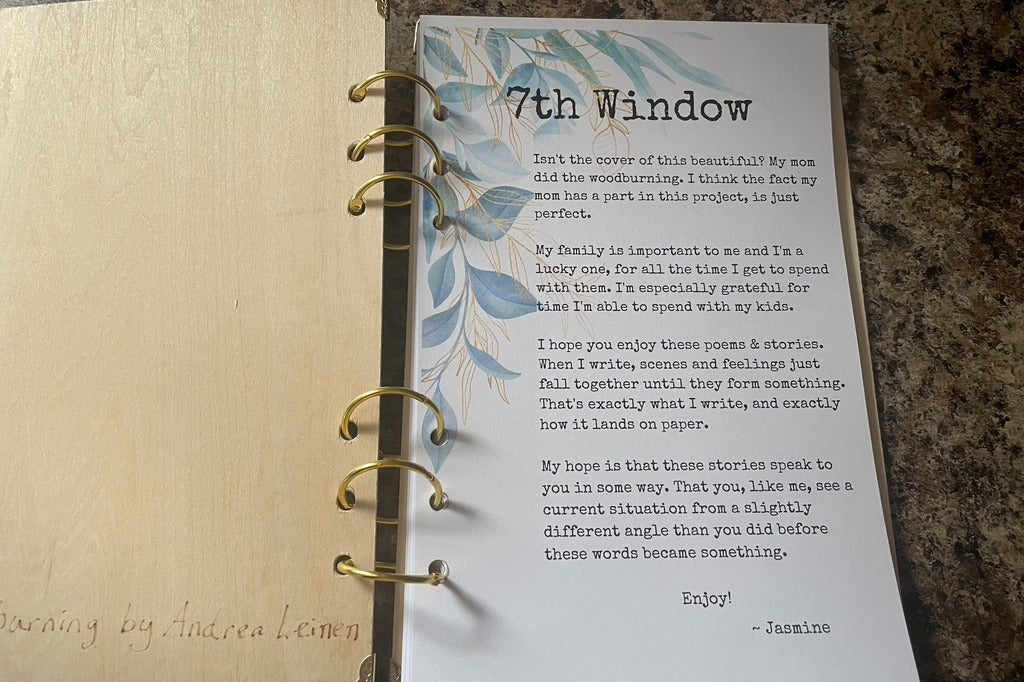 7th Window
Isn't the cover of this beautiful? My mom
did the woodburning. I think the fact my
mom has a part in this project, is just
perfect.
My family is important to me and I'm a
lucky one, for all the time I get to spend
with them. I'm especially grateful for
time I'm able to spend with my kids.
I hope you enjoy these poems & stories.
When I write, scenes and feelings just
fall together until they form something.
That's exactly what I write, and exactly
how it lands on paper.
My hope is that these stories speak to
you in some way. That you, like me, see a
current situation from a slightly
different angle than you did before
these words became something.
Enjoy!
~ Jasmine
burning by Andrea Leinen